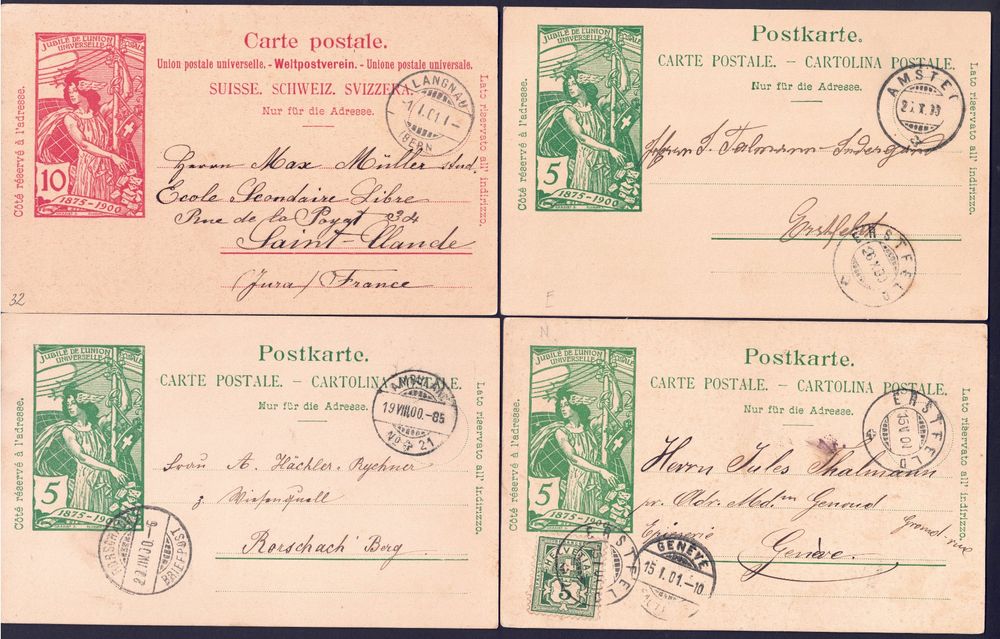 JUBILÉ DE L'UNION POSTALE
UNIVERSELLE
10
1875-1900
Côté réservé à l'adresse.
Carte postale.
Union postale universelle. - Weltpostverein. - Unione postale universale.
SUISSE. SCHWEIZ. SVIZZERA.
Nur für die Adresse.
Lato riservato all' indirizzo.
LANGNAU
(BERN
Herrn Max Müller
Ecole Secondaire Libre
Rue de la Poyat 34
Saint-Claude
(Jura) France
32
JUBILÉ DE L'UNION POSTALE
UNIVERSELLE
5
1875-1900
Côté réservé à l'adresse.
Postkarte.
CARTE POSTALE. - CARTOLINA POSTALE.
Nur für die Adresse.
Lato riservato all' indirizzo.
AMSTE
Erstfeld
ERSTFELD
E
JUBILÉ DE L'UNION POSTALE
UNIVERSELLE
5
1875-1900
Côté réservé à l'adresse.
Postkarte.
CARTE POSTALE. - CARTOLINA POSTALE.
Nur für die Adresse.
Lato riservato all' indirizzo.
19 VIII.00.-85
Frau A. Hächler-Rychner
z. Wiesenquell
Rorschach Berg
RORSCH
BRIEF
N
JUBILÉ DE L'UNION POSTALE
UNIVERSELLE
5
1875-1900
Côté réservé à l'adresse.
Postkarte.
CARTE POSTALE. - CARTOLINA POSTALE.
Nur für die Adresse.
Lato riservato all' indirizzo.
ERSTFELD
Herrn Jules Thalmann
pr. Adr. Genoud
Epicerie
Genève
HELVETIA
5
ERSTFELD
GENÈVE
15 I.01.-10